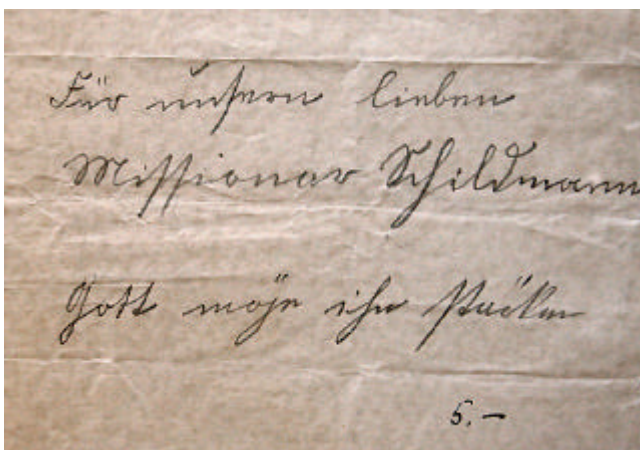 Für unsern lieben
Missionar Schildmann
Gott möge ihn stärken
5.–